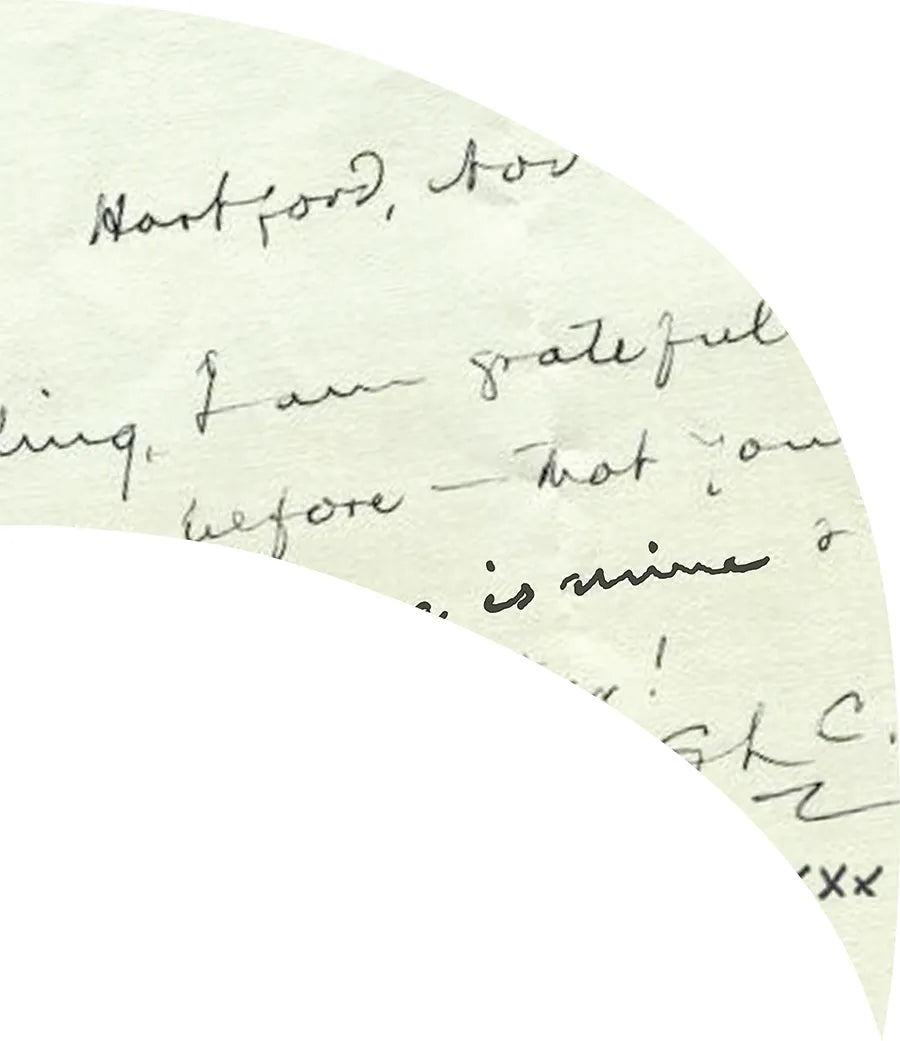 Hartford, Nov
ling, I am grateful
before — that you
is mine &
!
C.
xxx